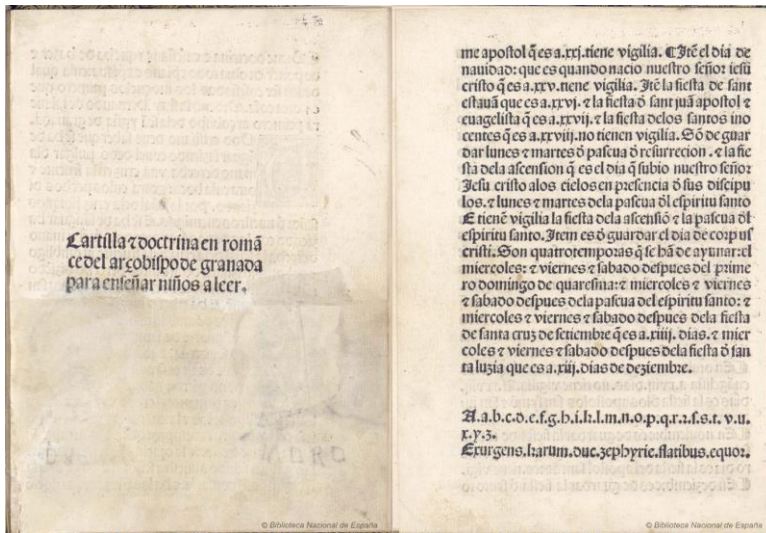 Cartilla ⁊ doctrina en romā
ce del arçobispo de granada
para enseñar niños a leer.
© Biblioteca Nacional de España
me apostol q̄ es a .xxj. tiene vigilia. ¶ Itē el dia de
nauidad: que es quando nacio nuestro señor iesū
cristo q̄ es a .xxv. tiene vigilia. Itē la fiesta de sant
esteuā que es a .xxvj. ⁊ la fiesta đ sant juā apostol ⁊
euāgelista q̄ es a .xxvij. ⁊ la fiesta delos santos ino
centes q̄ es a .xxviij. no tienen vigilia. Sō de guar
dar lunes ⁊ martes đ pascua đ resurrecion. ⁊ la fie
sta dela ascension q̄ es el dia q̄ subio nuestro señor
Jesu cristo alos cielos en presencia đ sus discipu
los. ⁊ lunes ⁊ martes dela pascua đl espiritu santo
E tienē vigilia la fiesta dela ascensiō ⁊ la pascua đl
espiritu santo. Item es đ guardar el dia de corpus
cristi. Son quatro temporas q̄ se hā de ayunar: el
miercoles: ⁊ viernes ⁊ sabado despues del prime
ro domingo de quaresma: ⁊ miercoles ⁊ viernes
⁊ sabado despues dela pascua del espiritu santo: ⁊
miercoles ⁊ viernes ⁊ sabado despues dela fiesta
de santa cruz de setiembre q̄ es a .xiiij. dias. ⁊ mier
coles ⁊ viernes ⁊ sabado despues dela fiesta đ san
ta luzia que es a .xiij. dias de deziembre.
A.a.b.c.d.e.f.g.h.i.k.l.m.n.o.p.q.r.ꝛ.s.s.t.v.u.
x.y.z.
Exurgens. harum. due. zephyrie. flatibus. equor.
© Biblioteca Nacional de España